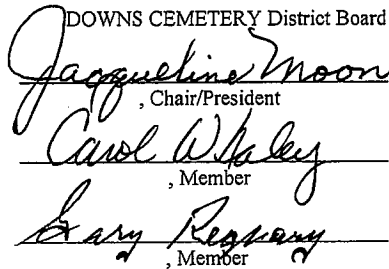 DOWNS CEMETERY District Board
Jacqueline Moon
, Chair/President
Carol Whaley
, Member
Gary
, Member